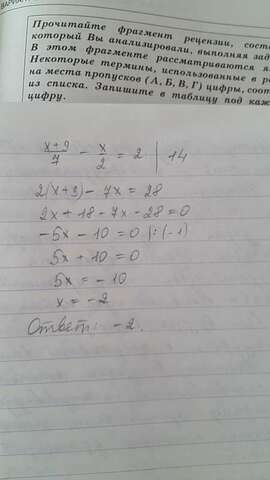 ВАРИАНТ
Прочитайте фрагмент рецензии, сост
который Вы анализировали, выполняя зад
В этом фрагменте рассматриваются я
Некоторые термины, использованные в р
на места пропусков (А, Б, В, Г) цифры, соот
из списка. Запишите в таблицу под каж
цифру.
x+9/7 - x/2 = 2 | 14
2(x+9) - 7x = 28
2x + 18 - 7x - 28 = 0
-5x - 10 = 0 |:(-1)
5x + 10 = 0
5x = -10
x = -2
Ответ: -2.